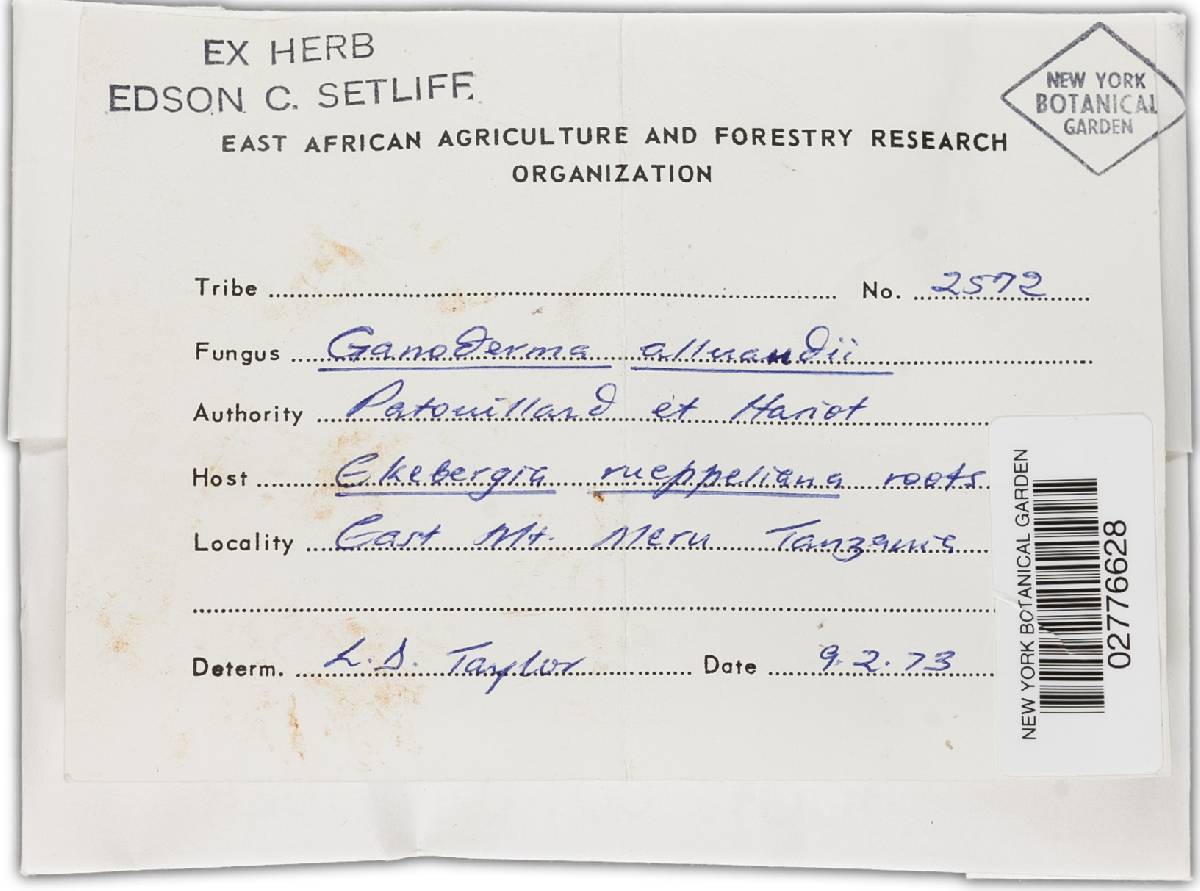 EX HERB
EDSON C. SETLIFF
NEW YORK
BOTANICAL
GARDEN
EAST AFRICAN AGRICULTURE AND FORESTRY RESEARCH
ORGANIZATION
Tribe No. 2572
Fungus Ganoderma alluaudii
Authority Patouillard et Hariot
Host Ekebergia rueppeliana roots
Locality East Mt. Meru Tanzania
Determ. L.D. Taylor Date 9.2.73
NEW YORK BOTANICAL GARDEN
02776628